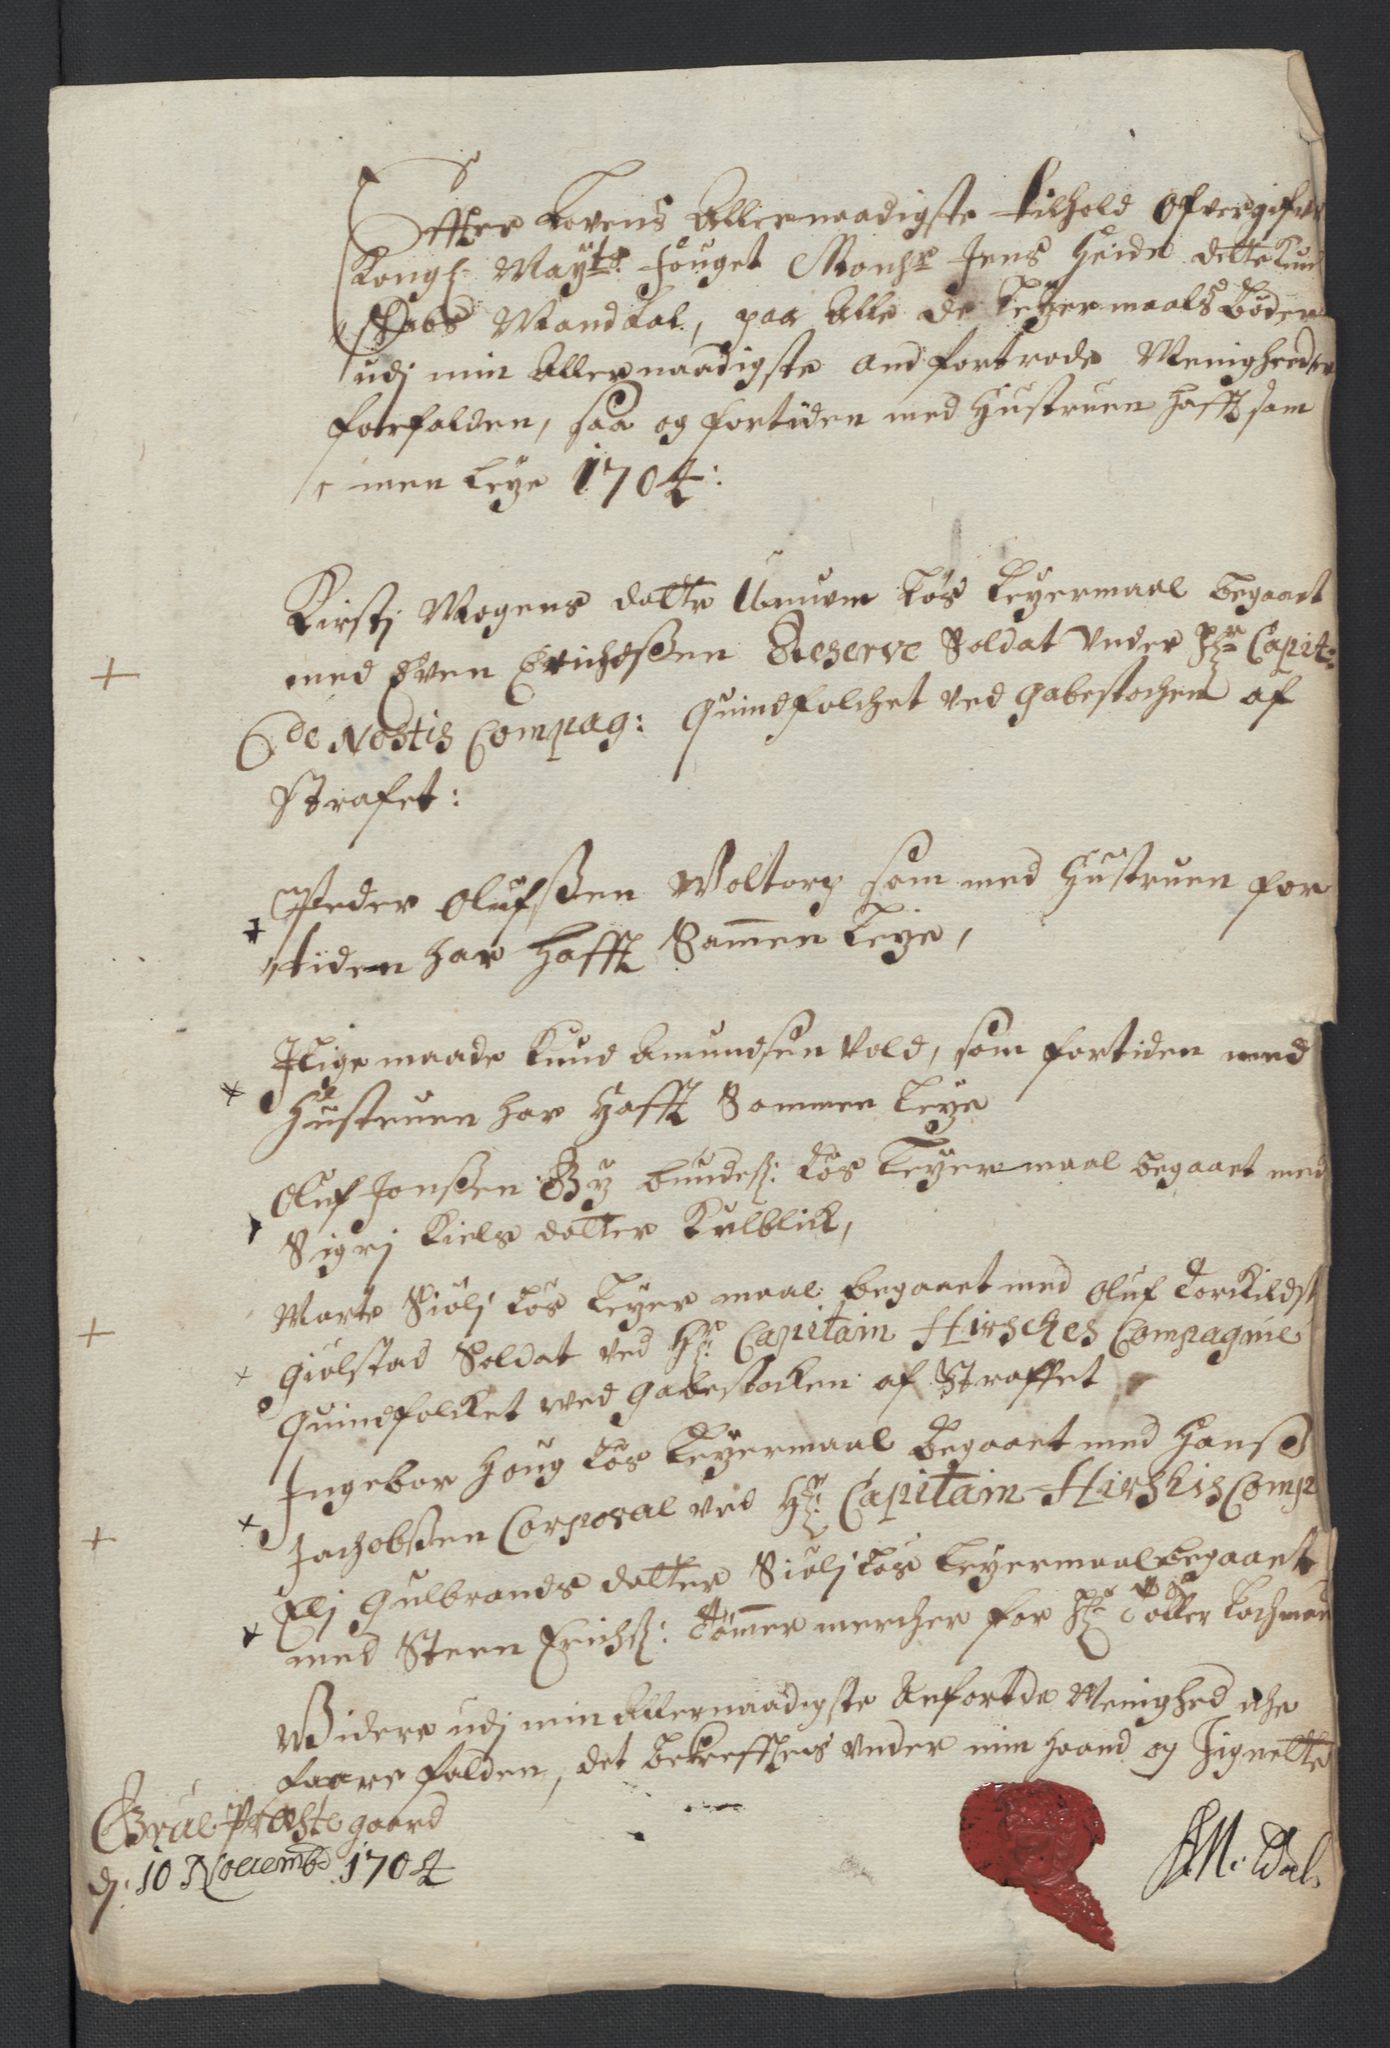 Effter Lovens Allernaadigste tilhold Ofvergifves
Kongl: Mayts. fouget Monhr. Jens Heide dette Kund
skabs Mandtal, paa Alle de Leyermaals Bøder
udj min Allernaadigste andfortrode Menigheeder
forfalden, saa og fortiden med Hustruen hafft sam
men Leye 1704:
Kirstj Mogens datter løs Leyermaal begaaet
med Even Erichsen Reserve Soldat under Hr Capit:
de Nostis Compag: Quindfolchet ved Gabestochen af
Strafet:
Peder Olufssen Woltorp som med Hustruen for
tiden har hafft Sammen Leye,
J lige maade Knud Amundsen Vold, som fortiden med
Hustruen har hafft Sammen Leye
Oluf Jonssen By løs Leyermaal begaaet med
Sigrj Kiels datter Kulblik,
Marte Siölj løs Leyer maal begaaet med Oluf Torkildss
Giölstad Soldat ved Hr: Capitain Hirsches Compagnie
Quindfolcket ved Gabestocken af Straffet
Ingebor Houg løs Leyermaal begaaet med Hanss
Jachobssen Corporal ved Hr: Capitain Hirshis Comp
Elj Gulbrands datter Siölj løs Leyermaal begaaet
med Steen Erichss: Tømmer mercher for Hr Lachman
Widere udj min Allernaadigste Anfortde Menighed iche
faare falden, det bekrefftes under min haand og Signette
Grue Præstegaard
dj: 10 Novemb 1704